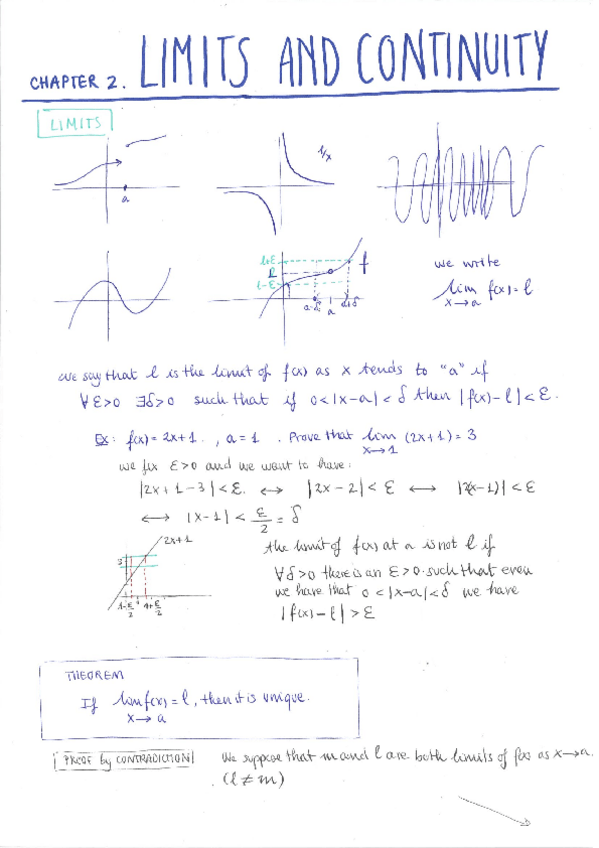 CHAPTER 2. LIMITS AND CONTINUITY
LIMITS
a
1/x
l+ε
l
l-ε
f
a-δ a a+δ
we write
lim f(x) = l
x→a
we say that l is the limit of f(x) as x tends to "a" if
∀ε>0 ∃δ>0 such that if 0<|x-a|<δ then |f(x)-l|<ε.
Ex: f(x)=2x+1. , a=1 . Prove that lim (2x+1)=3
x→1
we fix ε>0 and we want to have:
|2x+1-3|<ε. ↔ |2x-2|<ε ↔ |2(x-1)|<ε
↔ |x-1|< ε/2 = δ
2x+1
3
1-ε/2 1 1+ε/2
the limit of f(x) at a is not l if
∀δ>0 there is an ε>0 such that even
we have that 0<|x-a|<δ we have
|f(x)-l|>ε
THEOREM
If lim f(x)=l, then it is unique.
x→a
PROOF by CONTRADICTION
We suppose that m and l are both limits of f(x) as x→a.
(l≠m)